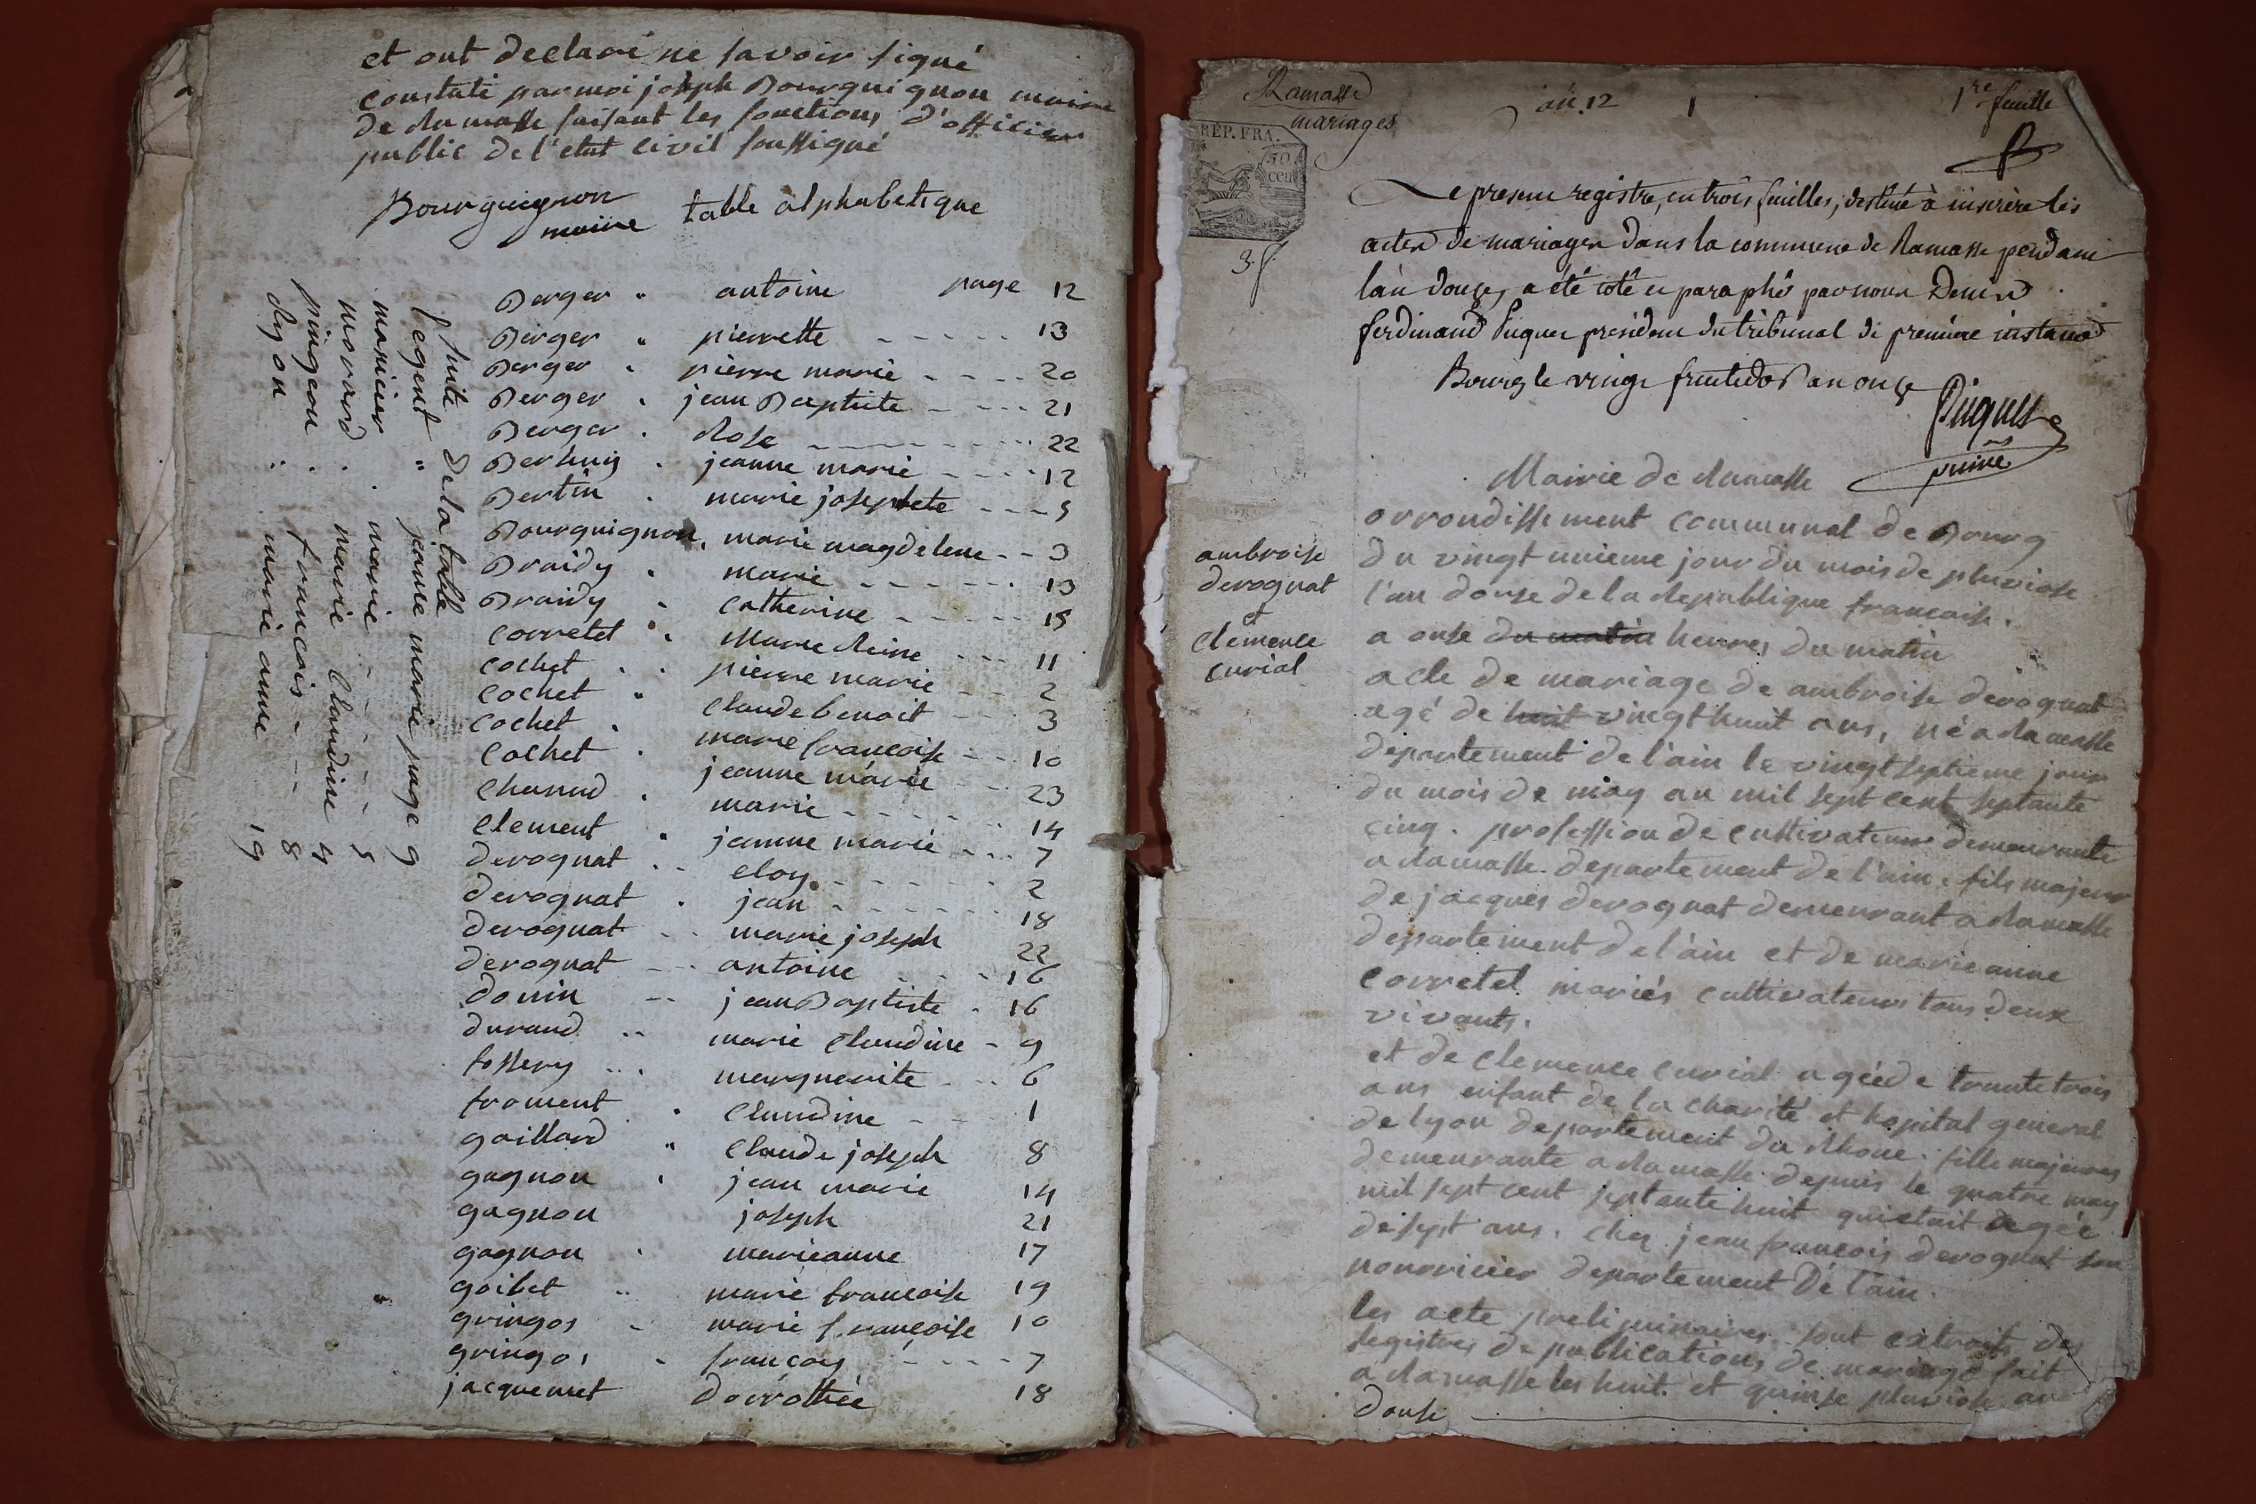 et ont declaré ne savoir signé
constaté par moi joseph Bourguignon maire
de Ramasse faisant les fonctions d'officier
public de l'etat civil soussigné
Bourguignon
maire
table alphabetique
Berger " antoine page 12
Berger " pierrette 13
Berger " pierre marie 20
Berger " jean Baptiste 21
Berger . Rose 22
jeanne marie 12
Bertin . marie josephete 5
Bourguignon, marie magdelene 3
Braidy . marie 13
Braidy " catherine 15
corretel " Marie Reine 11
cochet . . pierre marie 2
cochet " claude benoit 3
cochet . marie francoise 10
cochet . jeanne marie 23
marie 14
clement " jeanne marie 7
derognat . . eloy 2
derognat . jean 18
derognat marie joseph 22
derognat antoine 16
donin jean Baptiste 16
durand marie claudine 9
marguerite 6
froment . claudine 1
gaillard " claude joseph 8
gagnon . jean marie 14
gagnon joseph 21
gagnon . marieanne 17
goibet marie francoise 19
gringos marie francoise 10
gringos . françois 7
jacquemet dorrothée 18
suite de la table
legent " jeanne marie page 9
marie 5
morard . marie claudine 4
pingeon . francois 8
marie anne 19
Ramasse
mariages
an 12
1
1re feuille
RÉP. FRA.
3.f.
Le present registre, en trois feuilles, destiné à inserère les
actes de mariages dans la commune de Ramasse pendant
l'an douze, a été coté et paraphé par nous Denis
ferdinand Piquet président du tribunal de première instance
Bourg le vingt fructidor an onze
Piquet
Mairie de Ramasse
orrondissement communal de Bourg
du vingt unieme jour du mois de pluviose
l'an douse de la Republique francaise.
a onse du matin heures du matin
ambroise
derognat
et
clemence
curial
acte de mariage de ambroise derognat
agé de huit vingt huit ans, né a Ramasse
departement de l'ain le vingt septieme jour
du mois de may an mil sept cent septante
cinq. profession de cultivateur demeurante
a Ramasse departement de l'ain. fils majeur
de jacques derognat demeurant a Ramasse
departement de l'ain et de marie anne
corretel mariés cultivateurs tous deux
vivants.
et de clemence curial agéede trante trois
ans enfant de la charité et hopital general
de lyon departement du Rhone. fille majeure
demeurante a Ramasse depuis le quatre may
mil sept cent septante huit qui etait agée
de sept ans. chez jean francois derognat son
nourricier departement De l'ain.
les acte preliminaires sont extraits des
registres de publications de mariage fait
a Ramasse les huit et quinse pluviose an
douse